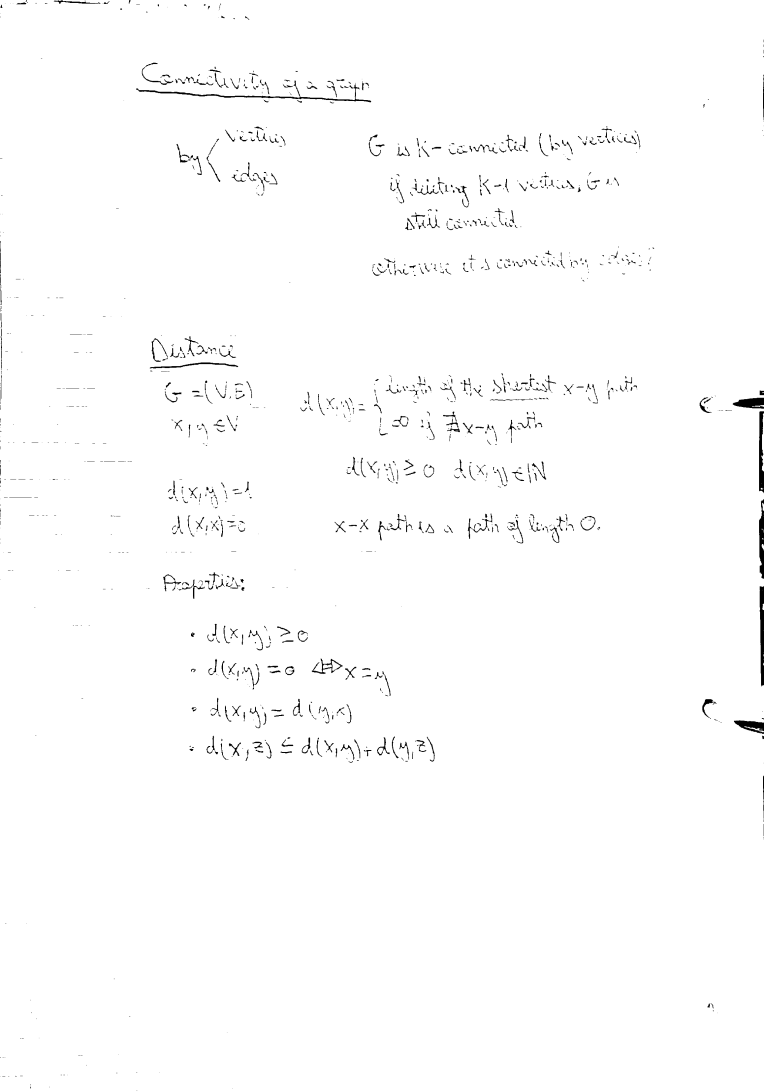 Connectivity of a graph
by { vertices
edges
G is K-connected (by vertices)
if deleting K-1 vertices, G is
still connected.
otherwise it s connected by edges?
Distance
G = (V,E)
x, y ∈ V
d(x,y) = { length of the shortest x-y path
=0 if ∄ x-y path
d(x,y) ≥ 0 d(x,y) ∈ ℕ
d(x,y) = 1
d(x,x) = 0
x-x path is a path of length 0.
Properties:
• d(x,y) ≥ 0
• d(x,y) = 0 ⇔ x = y
• d(x,y) = d(y,x)
• d(x,z) ≤ d(x,y) + d(y,z)